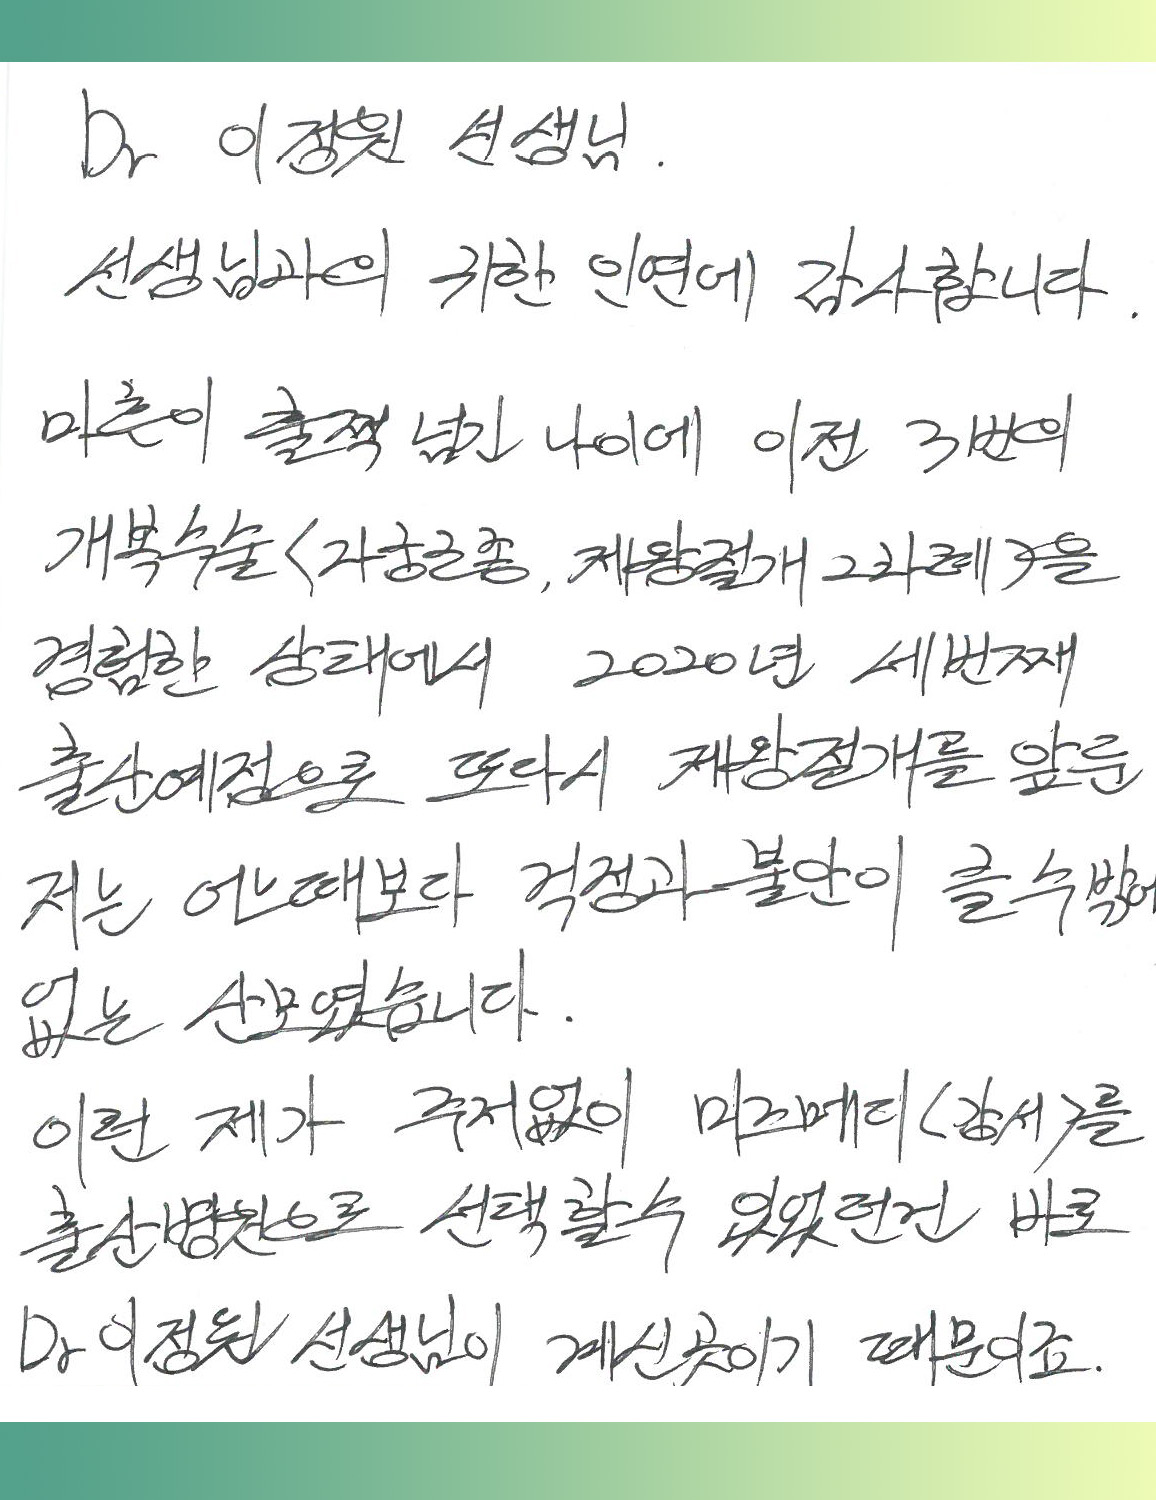 Dr 이정원 선생님.
선생님과의 귀한 인연에 감사합니다.
마흔이 훌쩍 넘긴 나이에 이전 3번의
개복수술<자궁근종, 제왕절개 2차례>을
경험한 상태에서 2020년 세번째
출산예정으로 또다시 제왕절개를 앞둔
저는 어느때보다 걱정과 불안이 클 수밖에
없는 산모였습니다.
이런 제가 주저없이 미즈메디<강서>를
출산병원으로 선택할수 있었던건 바로
Dr 이정원 선생님이 계신곳이기 때문이죠.